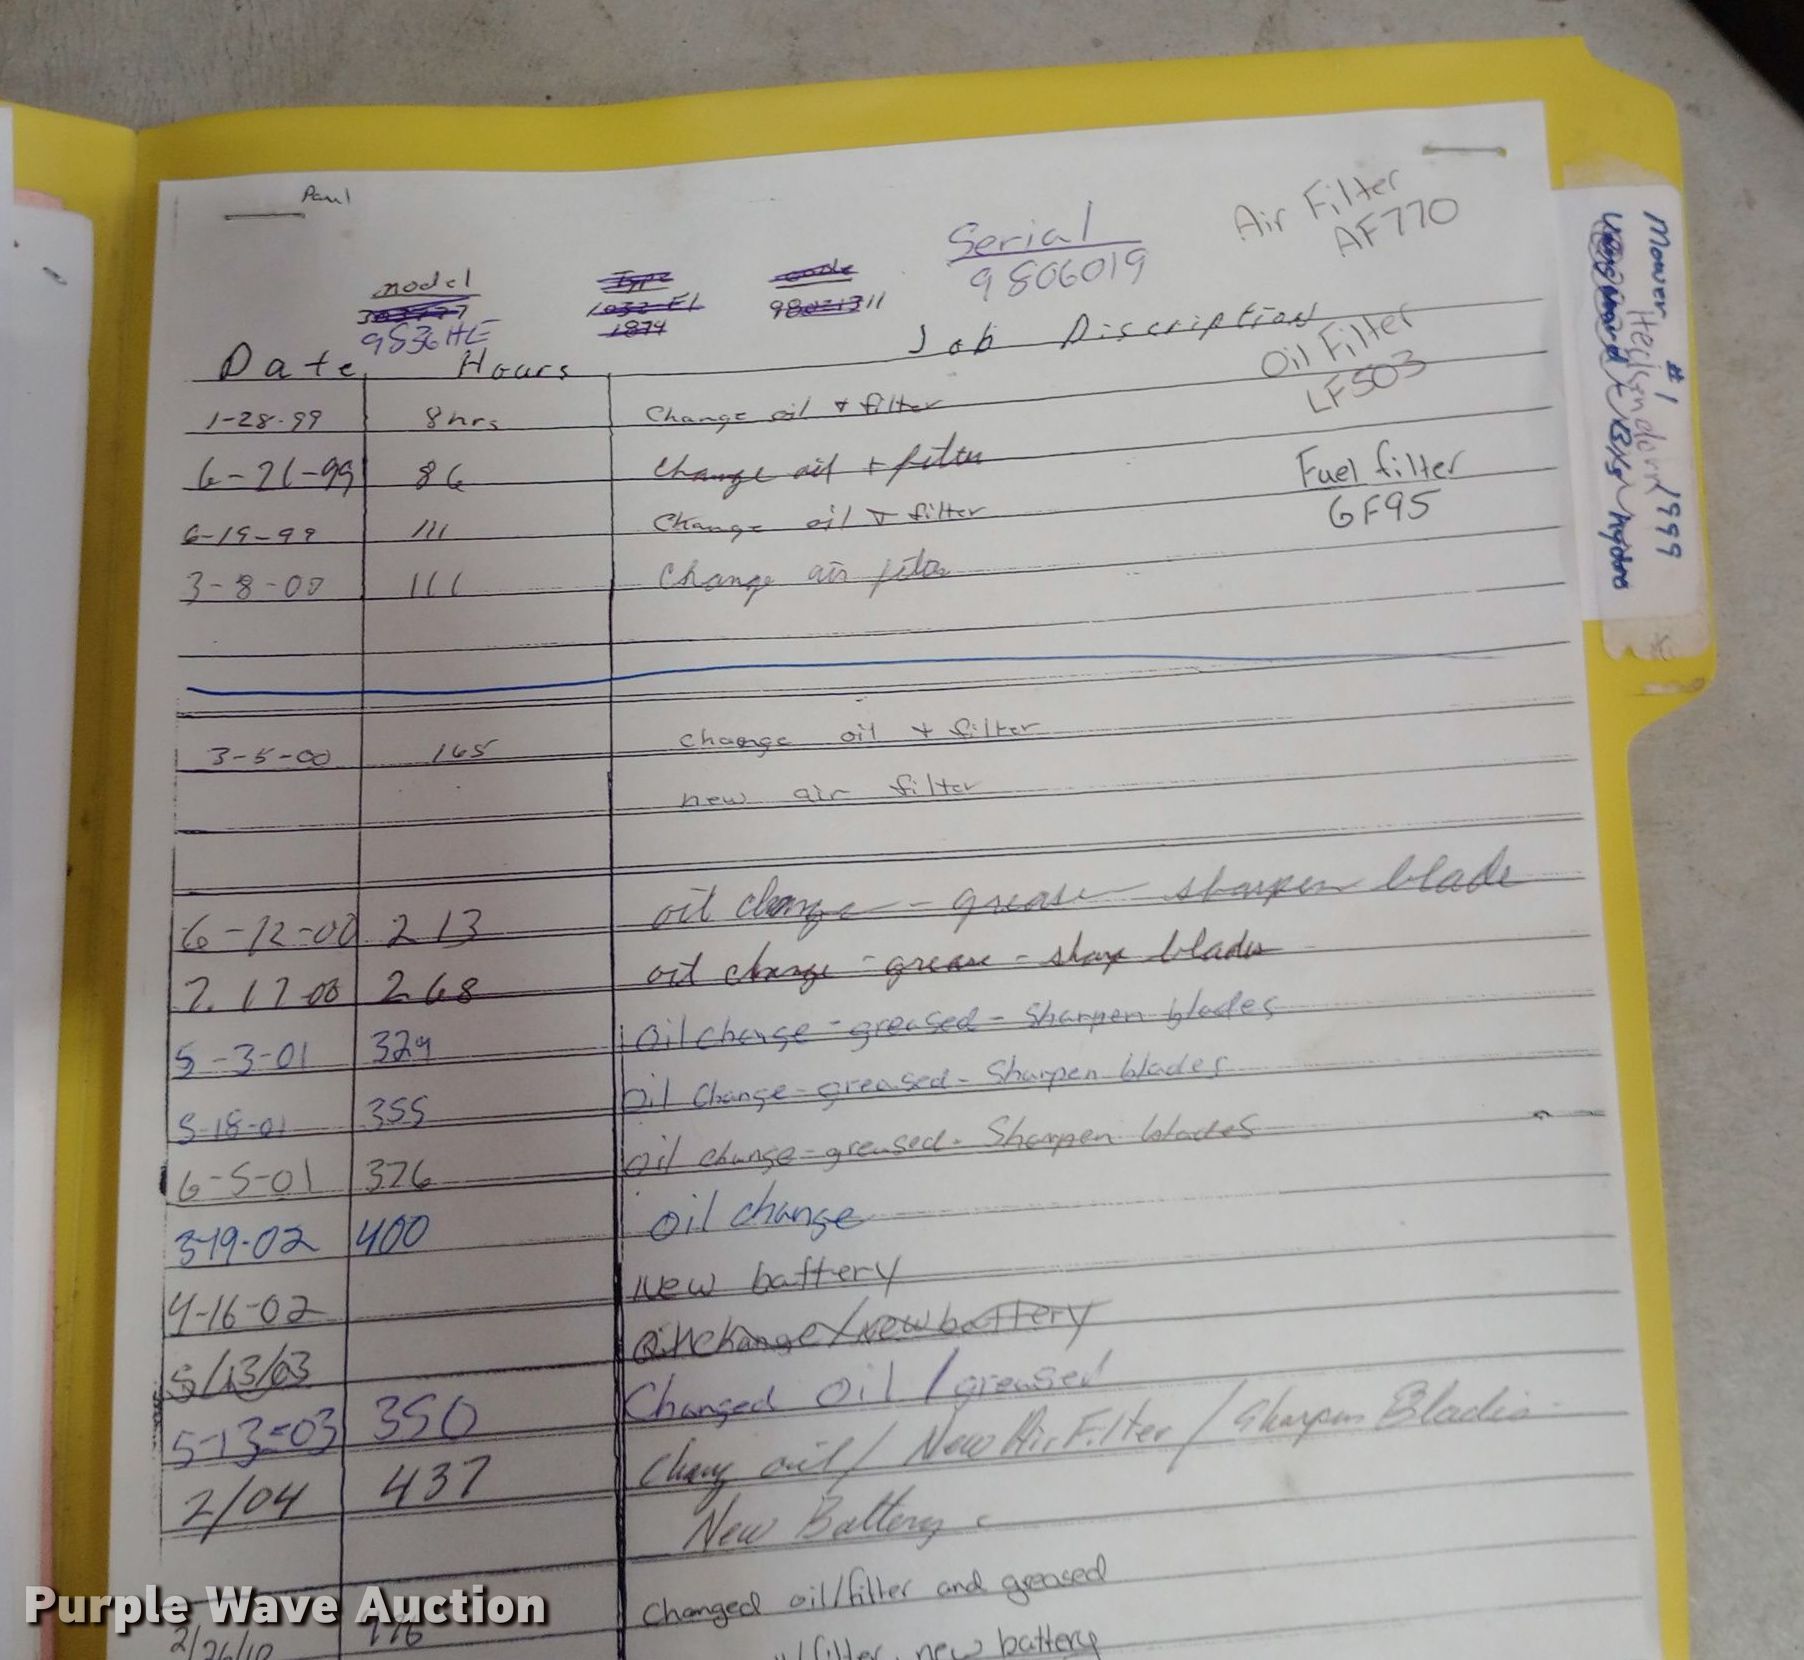 Paul
Air Filter
AF770
Serial
9806019
model
Type
code
303777
1032-E1
98021311
9836HE
1874
Job Discription
Oil Filter
LF503
Date Hours
1-28-99 8hrs Change oil + filter
6-21-99 86 Change oil + filter
Fuel filter
GF95
6-19-99 111 Change oil + filter
3-8-00 111 Change air filter
3-5-00 165 change oil + filter
new air filter
6-12-00 213 oil change - grease - sharpen blade
7.17-00 268 oil change - grease - sharp blades
5-3-01 329 Oil change - greased - Sharpen blades
5-18-01 355 oil Change - greased - Sharpen blades
6-5-01 376 oil change - greased - Sharpen blades
3-19-02 400 oil change
4-16-02 New battery
5/13/03 Oil change/new battery
5-13-03 350 Changed Oil / greased
2/04 437 Chang oil / New Air Filter / Sharpen Blades
New Battery
changed oil/filter and greased
2/26/10 776
/filter, new battery
Mower #1
1999
hydro
Purple Wave Auction